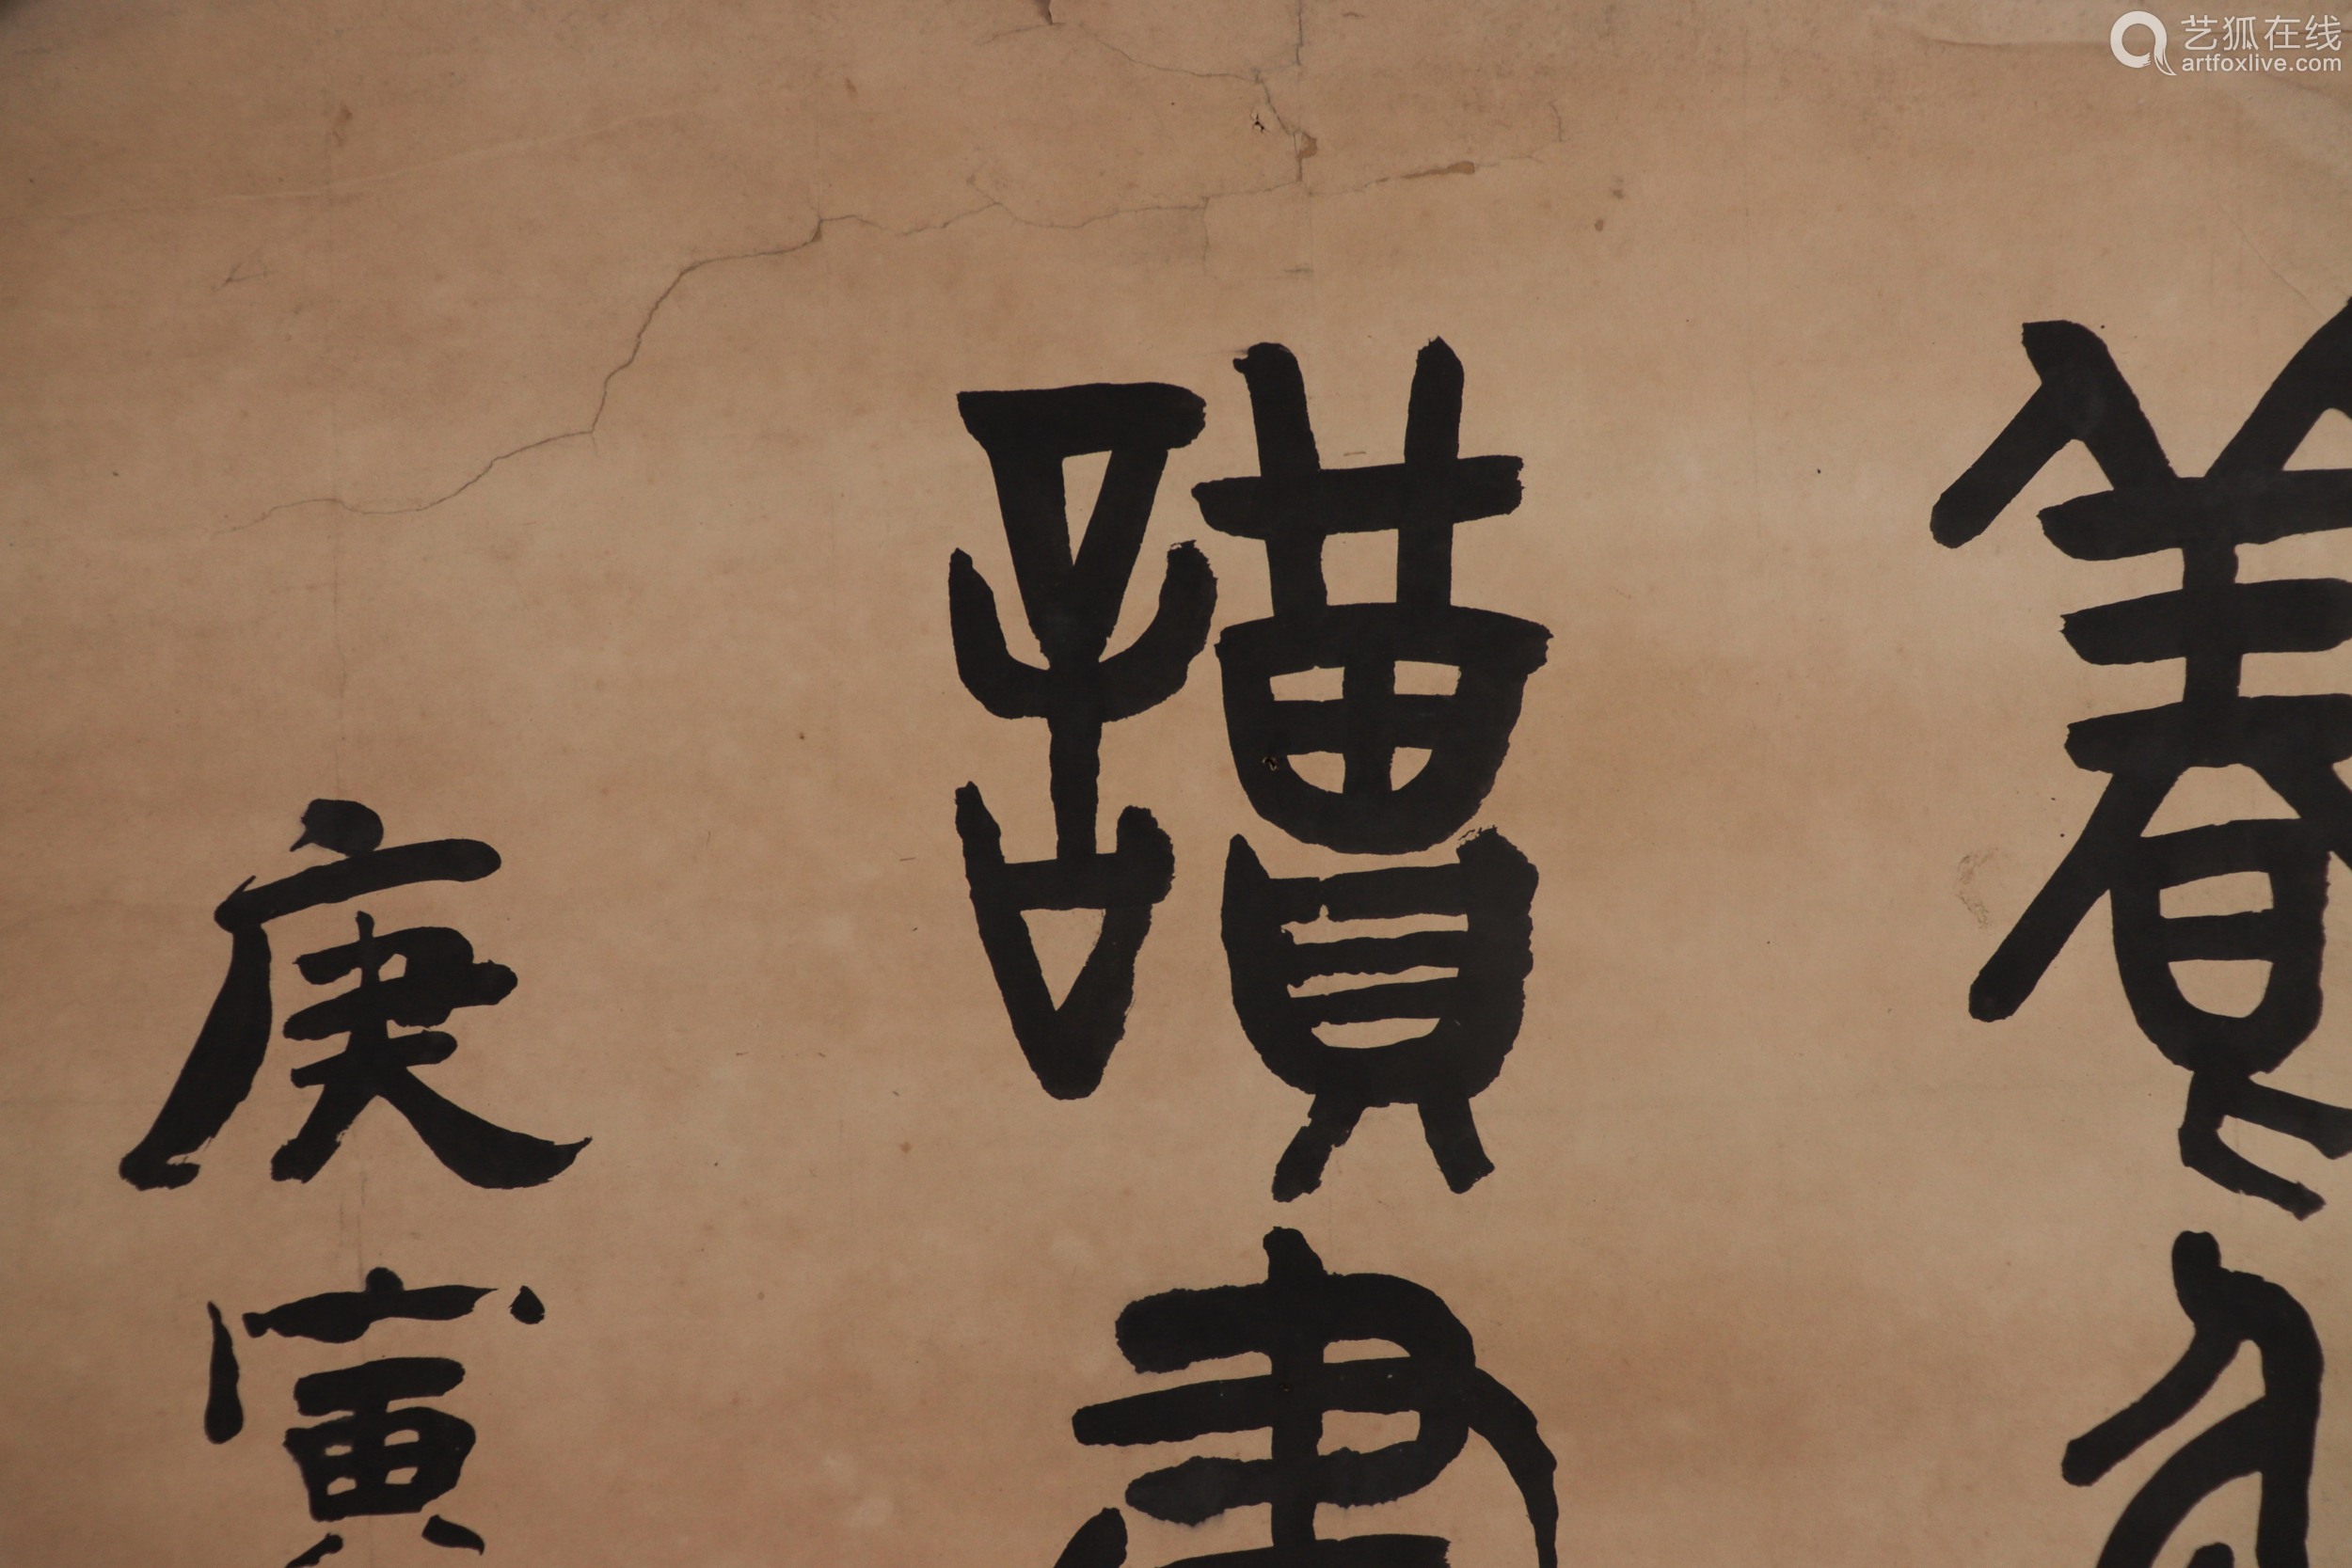 艺狐在线
artfoxlive.com
養
讀書
庚寅